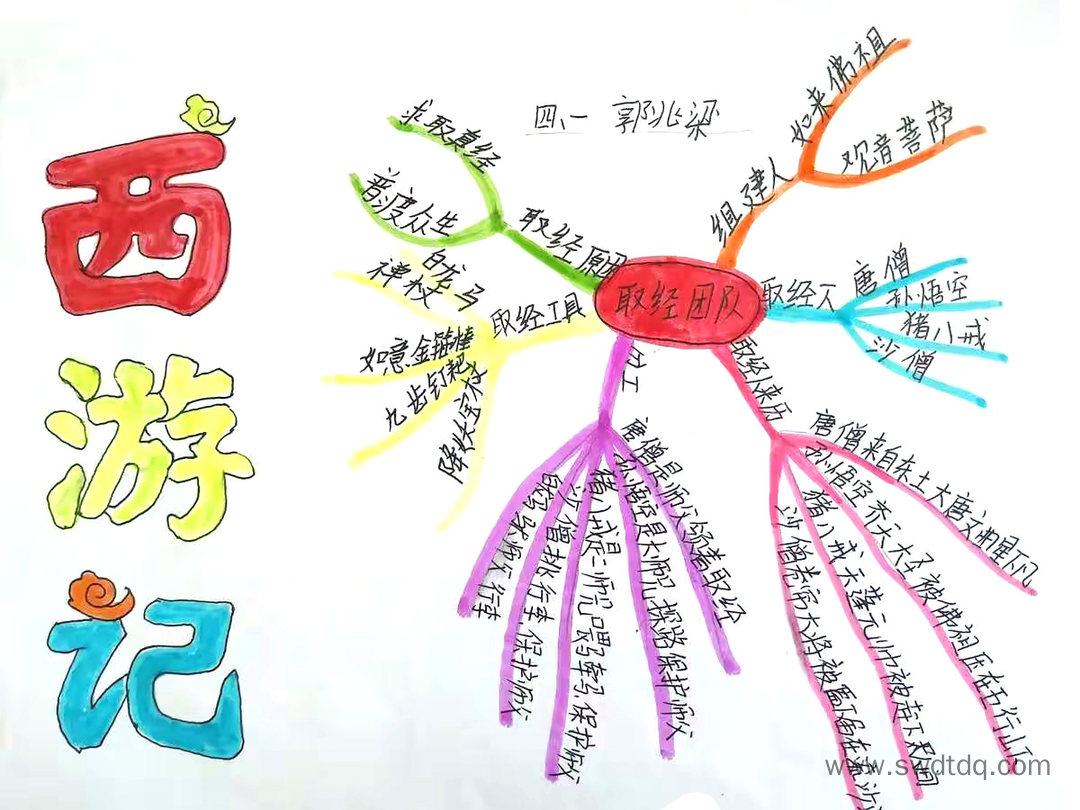 西
游
记
四、一 郭兆梁
取经团队
组建人
如来佛祖
观音菩萨
取经人
唐僧
孙悟空
猪八戒
沙僧
取经人来历
唐僧来自东土大唐
孙悟空 齐天大圣被佛祖压在五行山下
猪八戒天蓬元帅被
沙僧卷帘大将被
分工
唐僧是师父领着取经
孙悟空是大师兄 探路保护师父
猪八戒是二师兄 牵马 保护师父
沙僧挑行李 保护师父
取经工具
白龙马
禅杖
如意金箍棒
九齿钉耙
降妖宝杖
取经原因
求取真经
普渡众生
www.swdtdq.com